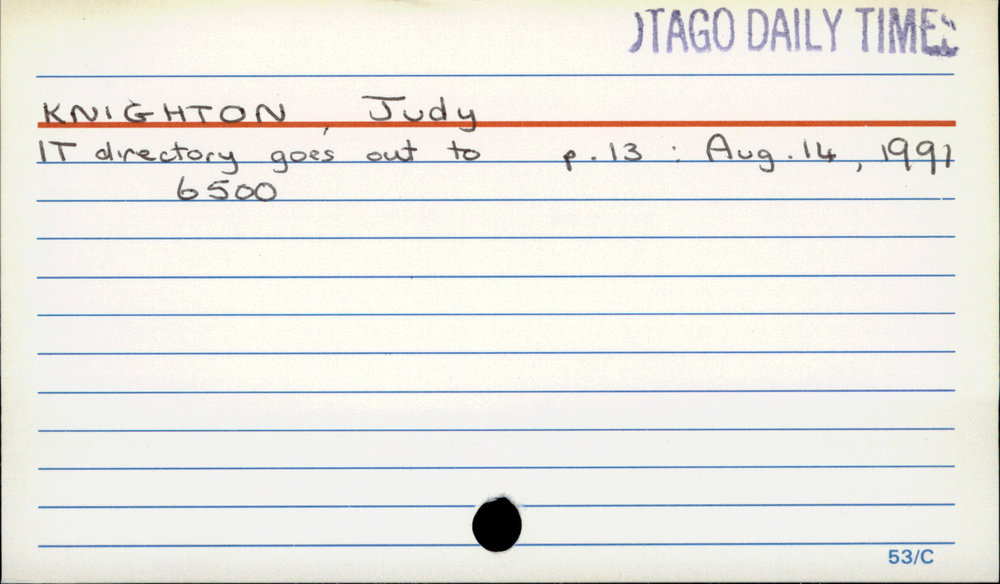 OTAGO DAILY TIMES
KNIGHTON, Judy
IT directory goes out to p.13 : Aug.14, 1991
6500
53/C